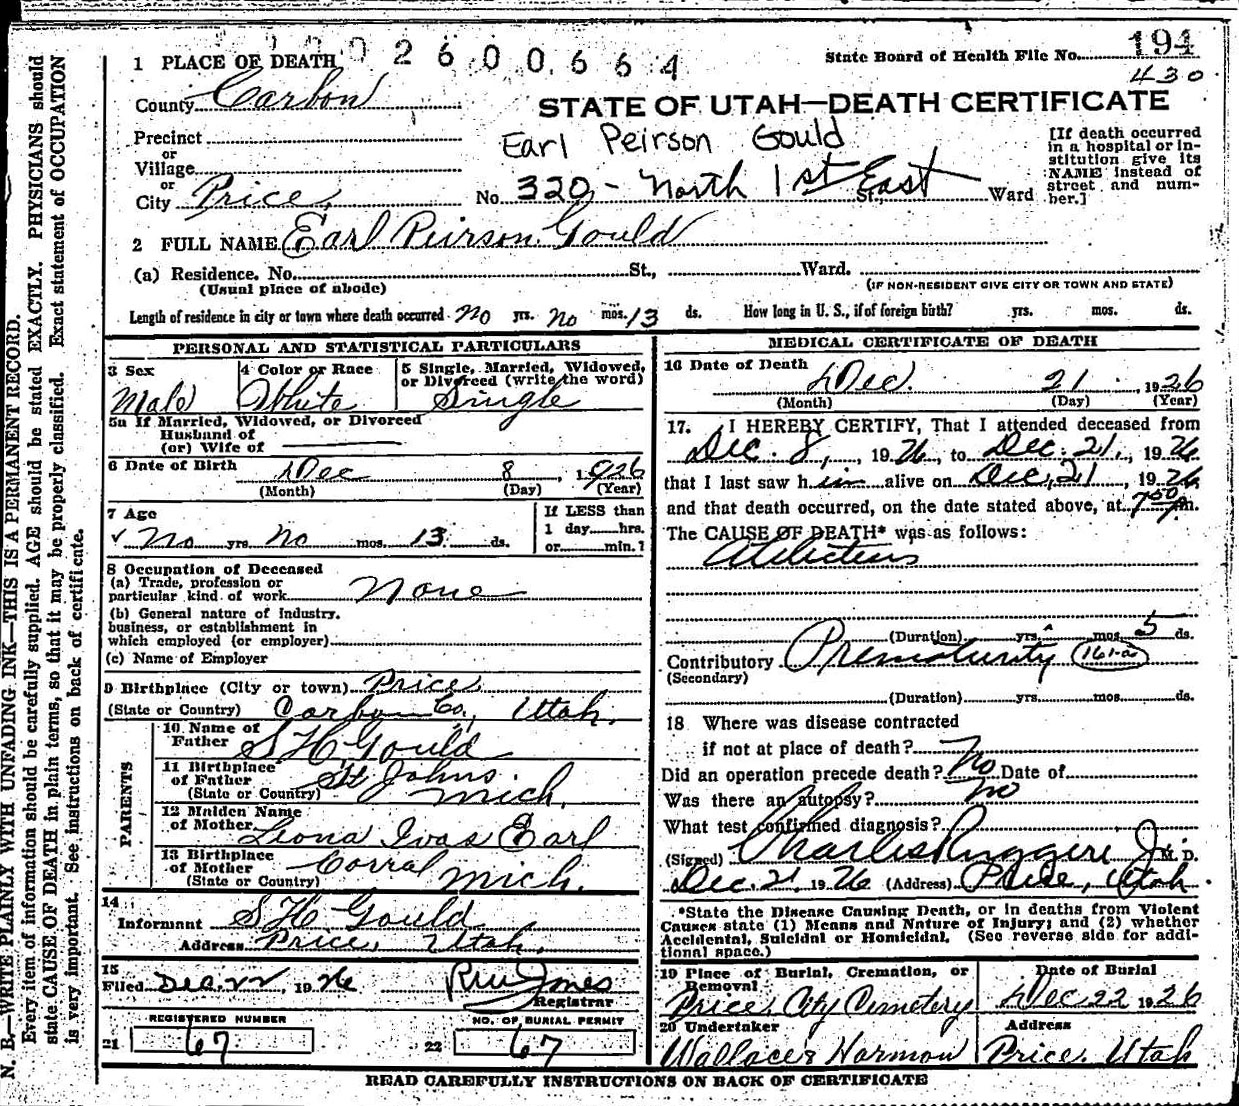 1 PLACE OF DEATH
2600664
State Board of Health File No. 194
430
County Carbon
STATE OF UTAH—DEATH CERTIFICATE
Precinct
Earl Peirson Gould
[If death occurred in a hospital or institution give its NAME instead of street and number.]
or
Village
or
City Price, No. 320 - North 1st East St., Ward
2 FULL NAME Earl Peirson Gould
(a) Residence. No. St., Ward.
(Usual place of abode) (IF NON-RESIDENT GIVE CITY OR TOWN AND STATE)
Length of residence in city or town where death occurred No yrs. No mos. 13 ds. How long in U. S., if of foreign birth? yrs. mos. ds.
PERSONAL AND STATISTICAL PARTICULARS
3 Sex Male
4 Color or Race White
5 Single, Married, Widowed, or Divorced (write the word) Single
5a If Married, Widowed, or Divorced
Husband of
(or) Wife of
6 Date of Birth Dec 8, 1926
(Month) (Day) (Year)
7 Age
No yrs. No mos. 13 ds.
If LESS than
1 day hrs.
or min.?
8 Occupation of Deceased
(a) Trade, profession or
particular kind of work None
(b) General nature of industry.
business, or establishment in
which employed (or employer)
(c) Name of Employer
9 Birthplace (City or town) Price
(State or Country) Carbon Co., Utah.
PARENTS
10 Name of
Father S H Gould
11 Birthplace
of Father St Johns.
(State or Country) Mich.
12 Maiden Name
of Mother Leona Ivas Earl
13 Birthplace
of Mother Corral
(State or Country) Mich.
14
Informant S H Gould
Address Price, Utah.
15
Filed Dec. 22, 1926 RW Jones
Registrar
REGISTERED NUMBER
21 67
NO. OF BURIAL PERMIT
22 67
MEDICAL CERTIFICATE OF DEATH
16 Date of Death
Dec. 21, 1926
(Month) (Day) (Year)
17. I HEREBY CERTIFY, That I attended deceased from
Dec. 8, 1926, to Dec. 21, 1926
that I last saw him alive on Dec, 21, 1926
and that death occurred, on the date stated above, at 7 50 Pm.
The CAUSE OF DEATH* was as follows:
(Duration) yrs. mos. 5 ds.
Contributory Prematurity 161-a
(Secondary)
(Duration) yrs. mos. ds.
18 Where was disease contracted
if not at place of death?
Did an operation precede death? No Date of
Was there an autopsy? No
What test confirmed diagnosis?
(Signed) Charles Ruggeri Jr. M. D.
Dec. 21, 1926 (Address) Price, Utah.
*State the Disease Causing Death, or in deaths from Violent
Causes state (1) Means and Nature of Injury; and (2) whether
Accidental, Suicidal or Homicidal. (See reverse side for addi-
tional space.)
19 Place of Burial, Cremation, or
Removal
Price City Cemetery
Date of Burial
Dec 22 1926
20 Undertaker
Wallace & Harmon
Address
Price, Utah
READ CAREFULLY INSTRUCTIONS ON BACK OF CERTIFICATE
N. B.—WRITE PLAINLY WITH UNFADING INK—THIS IS A PERMANENT RECORD.
Every item of information should be carefully supplied. AGE should be stated EXACTLY. PHYSICIANS should
state CAUSE OF DEATH in plain terms, so that it may be properly classified. Exact statement of OCCUPATION
is very important. See instructions on back of certificate.